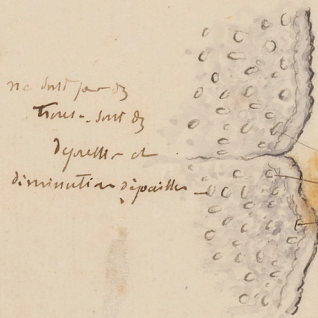 ne sont pas des
trous - sont des
dépressions et
diminution d'épaisseur